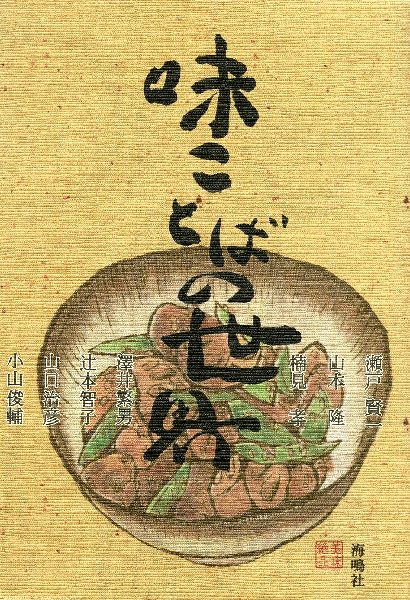 味ことばの世界
瀬戸賢一
山本 隆
楠見 孝
澤井繁男
辻本智子
山口治彦
小山俊輔
海鳴社